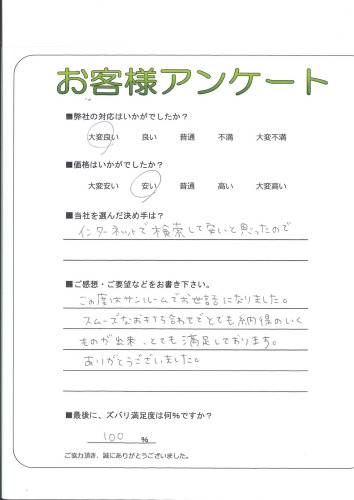 お客様アンケート
■弊社の対応はいかがでしたか？
大変良い 良い 普通 不満 大変不満
■価格はいかがでしたか？
大変安い 安い 普通 高い 大変高い
■当社を選んだ決め手は？
インターネットで検索して安いと思ったので
■ご感想・ご要望などをお書き下さい。
この度はサンルームでお世話になりました。
スムーズなお打ち合わせでとても納得のいく
ものが出来、とても満足しております。
ありがとうございました。
■最後に、ズバリ満足度は何％ですか？
100 ％
ご協力頂き、誠にありがとうございました。